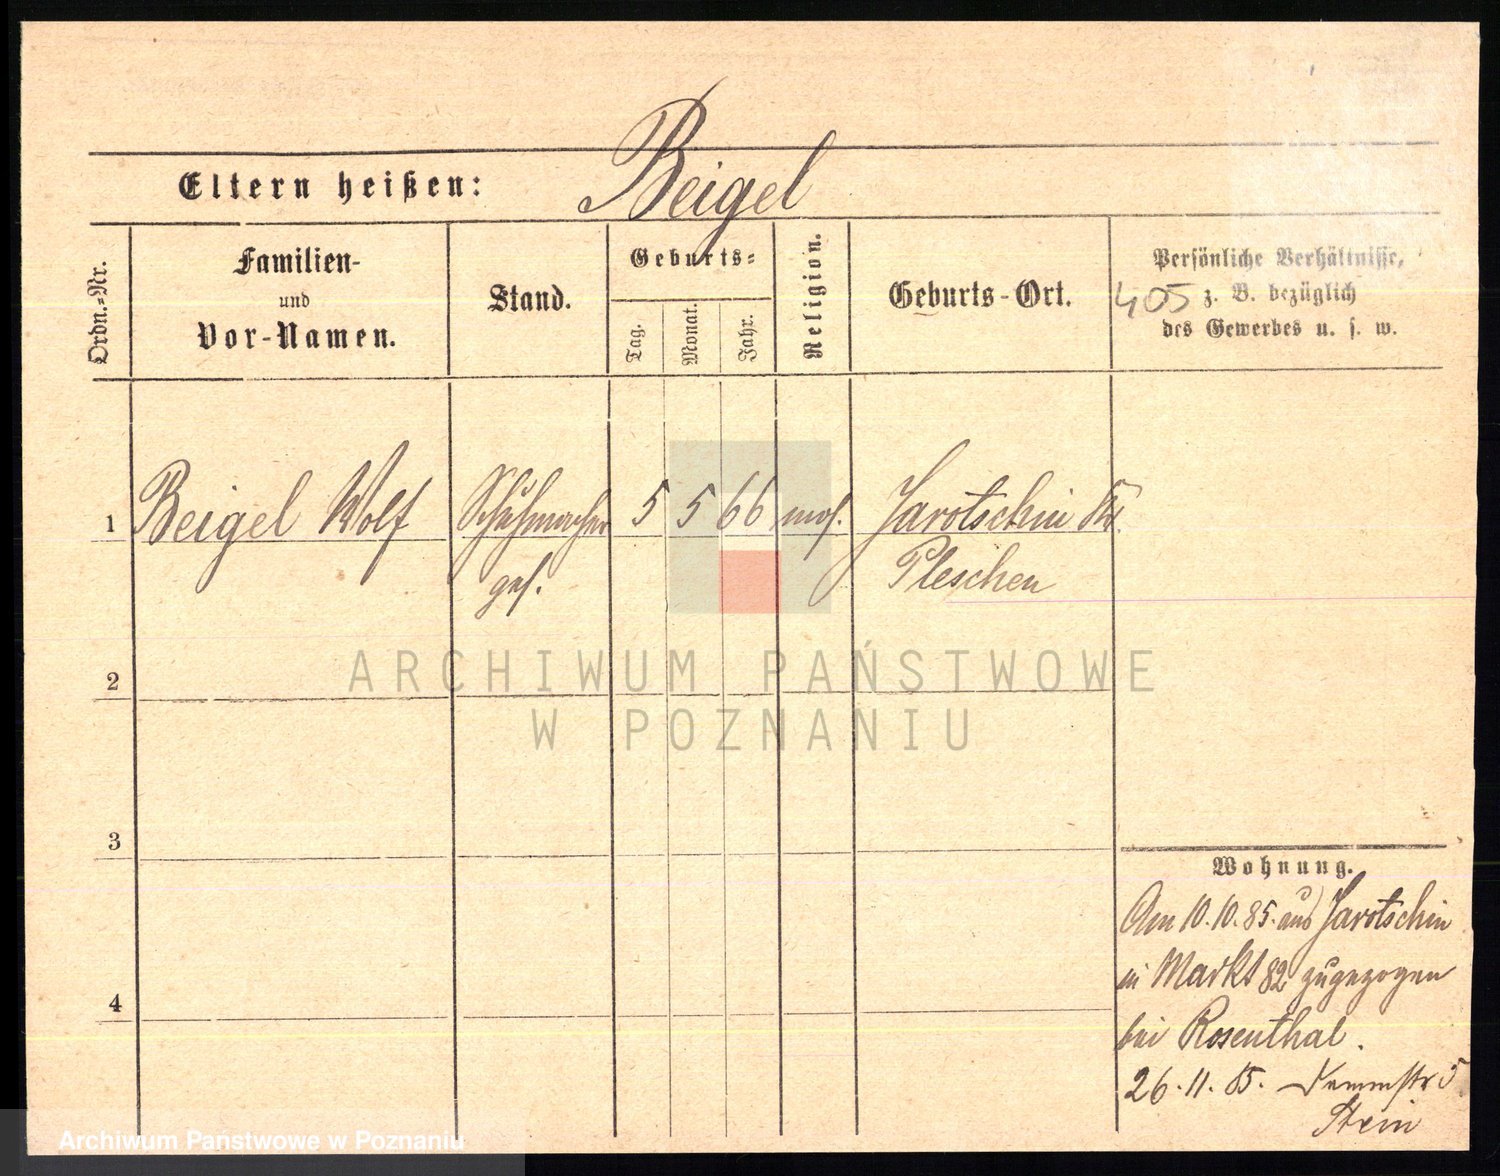 Eltern heißen: Beigel
Ordn.-Nr.
Familien-
und
Vor-Namen.
Stand.
Geburts-
Tag.
Monat.
Jahr.
Religion.
Geburts-Ort.
Persönliche Verhältnisse,
405 z. B. bezüglich
des Gewerbes u. s. w.
1 Beigel Wolf Schuhmacher 5 5 66 mos. Jarotschin Kr.
ges. Pleschen
2
3
4
Wohnung.
Am 10.10.85. aus Jarotschin
in Markt 82 zugezogen
bei Rosenthal.
26.11.85. 5
Stein
ARCHIWUM PAŃSTWOWE
W POZNANIU
Archiwum Państwowe w Poznaniu